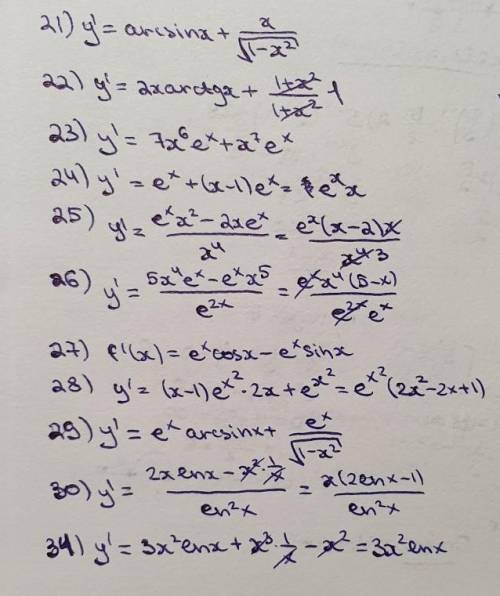 21) y' = arcsinx + x/√(1-x²)
22) y' = 2xarctgx + (1+x²)/(1+x²) 1
23) y' = 7x⁶eˣ + x⁷eˣ
24) y' = eˣ + (x-1)eˣ = eˣx
25) y' = (eˣx² - 2xeˣ)/x⁴ = (eˣ(x-2)x)/x⁴ 3
26) y' = (5x⁴eˣ - eˣx⁵)/e²ˣ = (eˣx⁴(5-x))/(e²ˣ eˣ)
27) f'(x) = eˣcosx - eˣsinx
28) y' = (x-1)e^x²·2x + e^x² = e^x²(2x²-2x+1)
29) y' = eˣarcsinx + eˣ/√(1-x²)
30) y' = (2xlnx - x²·1/x)/ln²x = x(2lnx-1)/ln²x
31) y' = 3x²lnx + x³·1/x - x² = 3x²lnx